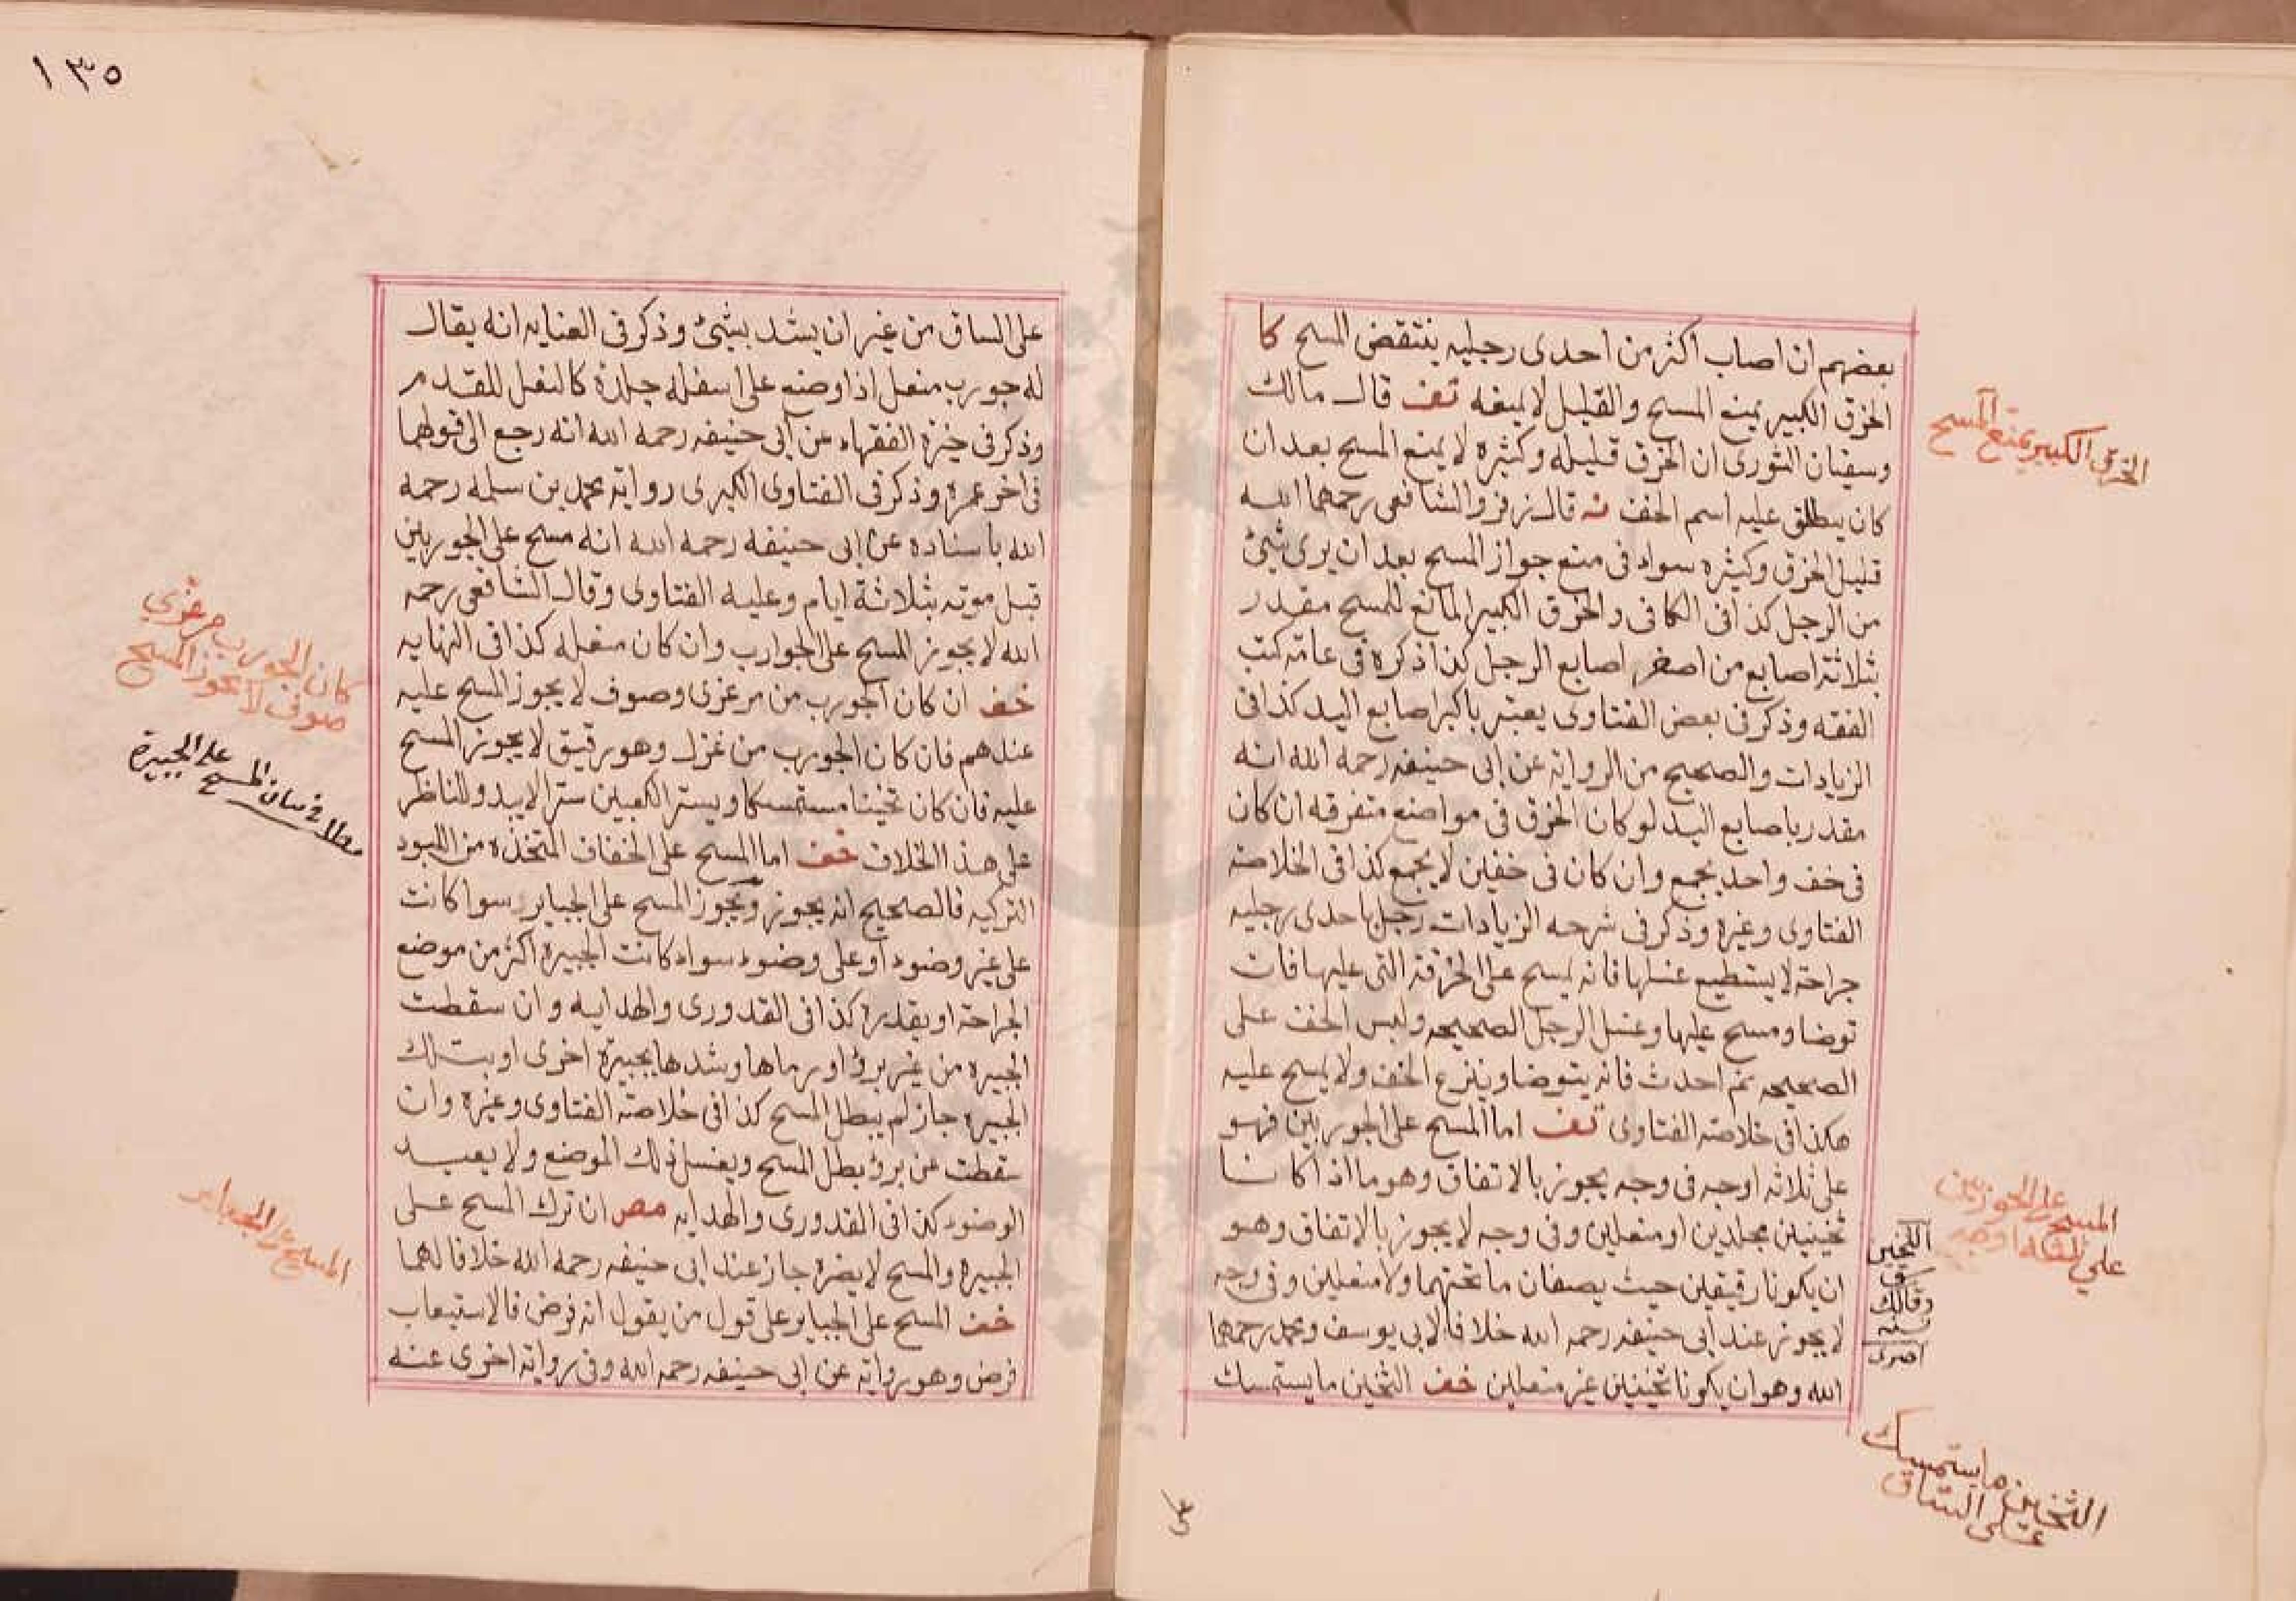 بعضهم ان اصاب اكثر من احدى رجليه ينتقض المسح كا
الخرق الكبير يمنع المسح والقليل لا يمنعه تف قال مالك
وسفيان الثورى ان الخرق قليله وكثيره لا يمنع المسح بعد ان
كان يطلق عليه اسم الخف نه قال زفر والشافعى رحمهما الله
قليل الخرق وكثيره سواء فى منع جواز المسح بعد ان يرى شئ
من الرجل كذا فى الكافى والخرق الكبير المانع للمسح مقدر
بثلاثة اصابع من اصغر اصابع الرجل كذا ذكره فى عامة كتب
الفقه وذكر فى بعض الفتاوى يعتبر باكبر اصابع اليد كذا فى
الزيادات والصحيح من الرواية عن ابى حنيفه رحمه الله انه
مقدر باصابع اليد لو كان الخرق فى مواضع متفرقه ان كان
فى خف واحد يجمع وان كان فى خفين لا يجمع كذا فى الخلاصة
الفتاوى وغيره وذكر فى شرحه الزيادات رجل باحدى رجليه
جراحة لا يستطيع غسلها فانه يمسح على الخرقة التى عليها فان
توضا ومسح عليها وغسل الرجل الصحيحه ولبس الخف على
الصحيحه ثم احدث فانه يتوضا وينزع الخف ولا يمسح عليه
هكذا فى خلاصة الفتاوى تف اما المسح على الجوربين فهو
على ثلاثه اوجه فى وجه يجوز بالاتفاق وهو ما اذا كانا
ثخينين مجلدين او منعلين وفى وجه لا يجوز بالاتفاق وهو
ان يكونا رقيقين حيث يصفان ما تحتهما ولا منعلين وفى وجه
لا يجوز عند ابى حنيفه رحمه الله خلافا لابى يوسف ومحمد رحمهما
الله وهو ان يكونا ثخينين غير منعلين خف الثخين ما يستمسك
الخرق الكبير يمنع المسح
المسح على الجوربين
على ثلثة اوجه
الثخين ما يستمسك
على الساق
١٣٥
على الساق من غير ان يشد بشئ وذكر فى العنايه انه يقال
له جورب منعل اذا وضع على اسفله جلدة كالنعل للقدم
وذكر فى خيرة الفقهاء عن ابى حنيفه رحمه الله انه رجع الى قولهما
فى اخر عمره وذكر فى الفتاوى الكبرى رواية محمد بن سلمه رحمه
الله باسناده عن ابى حنيفه رحمه الله انه مسح على الجوربين
قبل موته بثلاثة ايام وعليه الفتاوى وقال الشافعى رحمه
الله لا يجوز المسح على الجوارب وان كان منعله كذا فى النهايه
خف ان كان الجورب من مرعزى وصوف لا يجوز المسح عليه
عندهم فان كان الجورب من غزل وهو رقيق لا يجوز المسح
عليه فان كان ثخينا مستمسكا ويستر الكعبين سترا لا يبدو للناظر
على هذا الخلاف خف اما المسح على الخفاف المتخذه من اللبود
التركيه فالصحيح انه يجوز ويجوز المسح على الجباير سوا كانت
على غير وضوء او على وضوء سواء كانت الجبيره اكثر من موضع
الجراحة او بقدره كذا فى القدورى والهدايه وان سقطت
الجبيره من غير برؤ او رماها وشدها بجبيرة اخرى او بتلك
الجبيره جاز لم يبطل المسح كذا فى خلاصة الفتاوى وغيره وان
سقطت عن برؤ بطل المسح ويغسل ذلك الموضع ولا يعيد
الوضوء كذا فى القدورى والهدايه مص ان ترك المسح على
الجبيره والمسح لا يضره جاز عند ابى حنيفه رحمه الله خلافا لهما
خف المسح على الجباير على قول من يقول انه فرض فالاستيعاب
فرض وهو رواية عن ابى حنيفه رحمه الله وفى رواية اخرى عنه
كان الجورب مرعزي
صوف لا يجوز المسح
فى بيان المسح على الجبيرة
المسح على الجباير